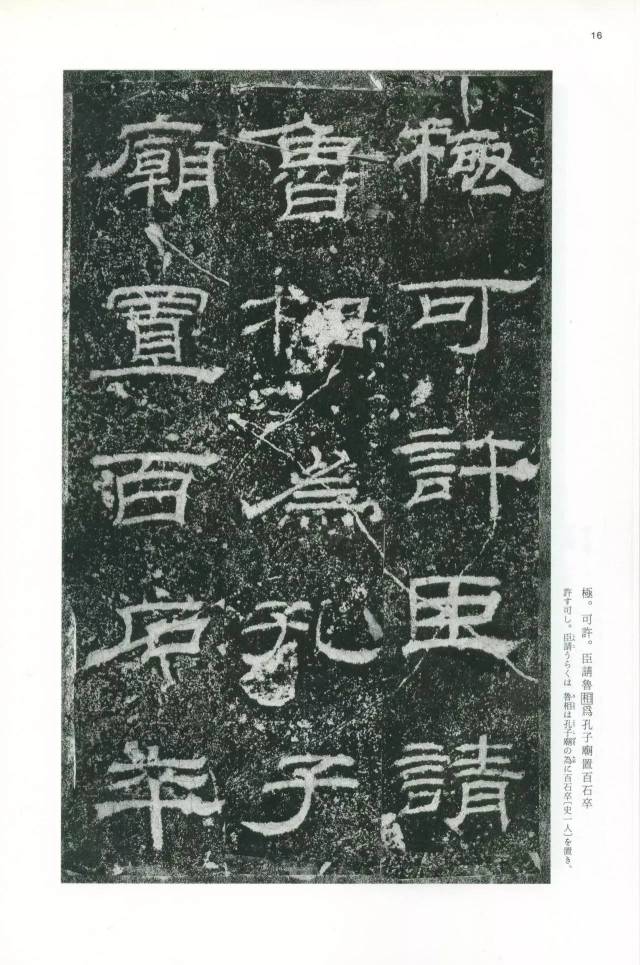 16
極可許臣請
魯相為孔子
廟置百石卒
極。可許。臣請魯相爲孔子廟置百石卒
許す可し。臣請うらくは 魯相は孔子廟の為に百石卒〔史一人〕を置き、